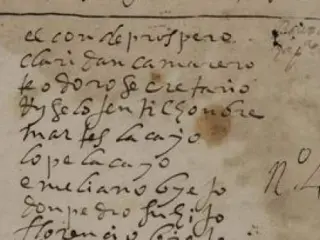 el conde prospero
claridan camarero
teodoro secretario
gentilhonbre
martes lacayo
lope lacayo
emeliano biejo
don pedro su hijo
florencio